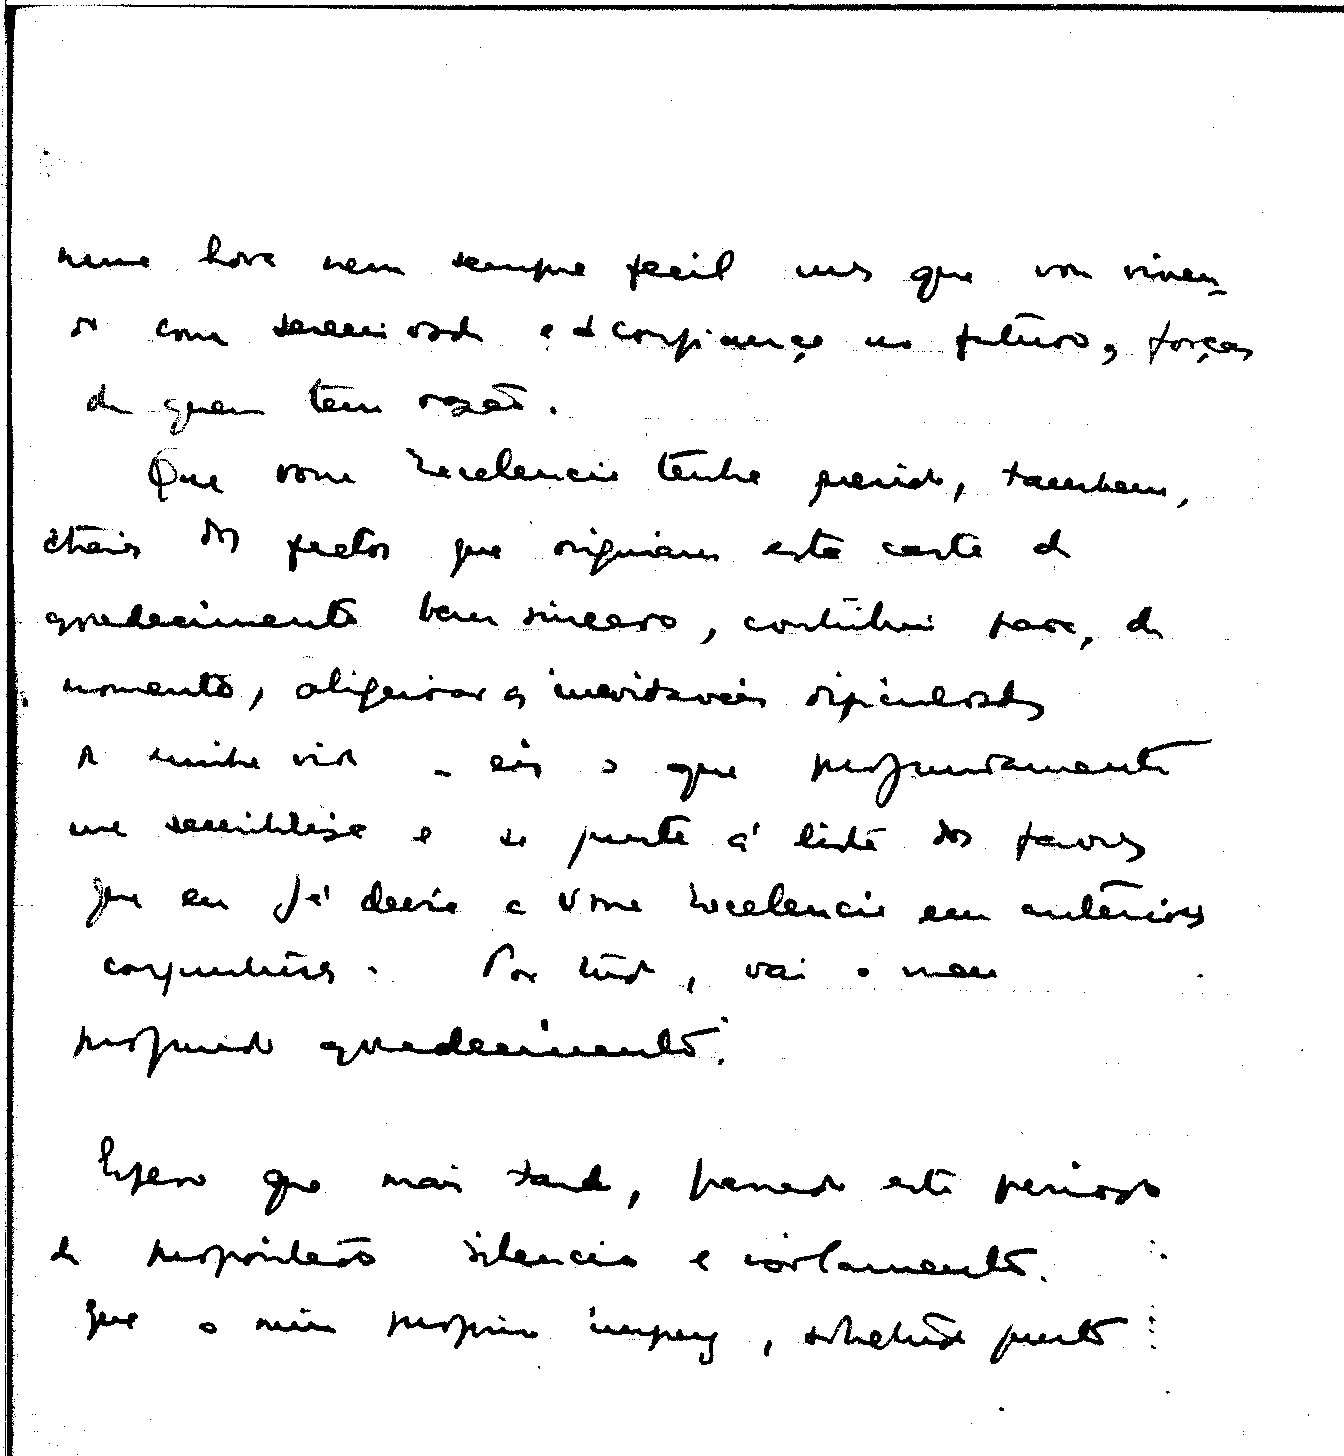 numa hora nem sempre fácil mas que vou viven-
do com serenidade e a confiança no futuro, forças
de quem tem razão.
Que Vossa Excelencia tenha querido, tambem,
atrás dos factos que originam esta carta de
agradecimento bem sincero, contribuir para, de
momento, aligeirar as inevitáveis dificuldades
da minha vida - eis o que profundamente
me sensibiliza e se junta á lista dos favores
que eu já devia a Vossa Excelencia em anteriores
conjunturas. Por tudo, vai o meu
profundo agradecimento.
Espero que mais tarde, passado este periodo
de propositado silencio e isolamento
que a mim proprio impus, sobretudo junto